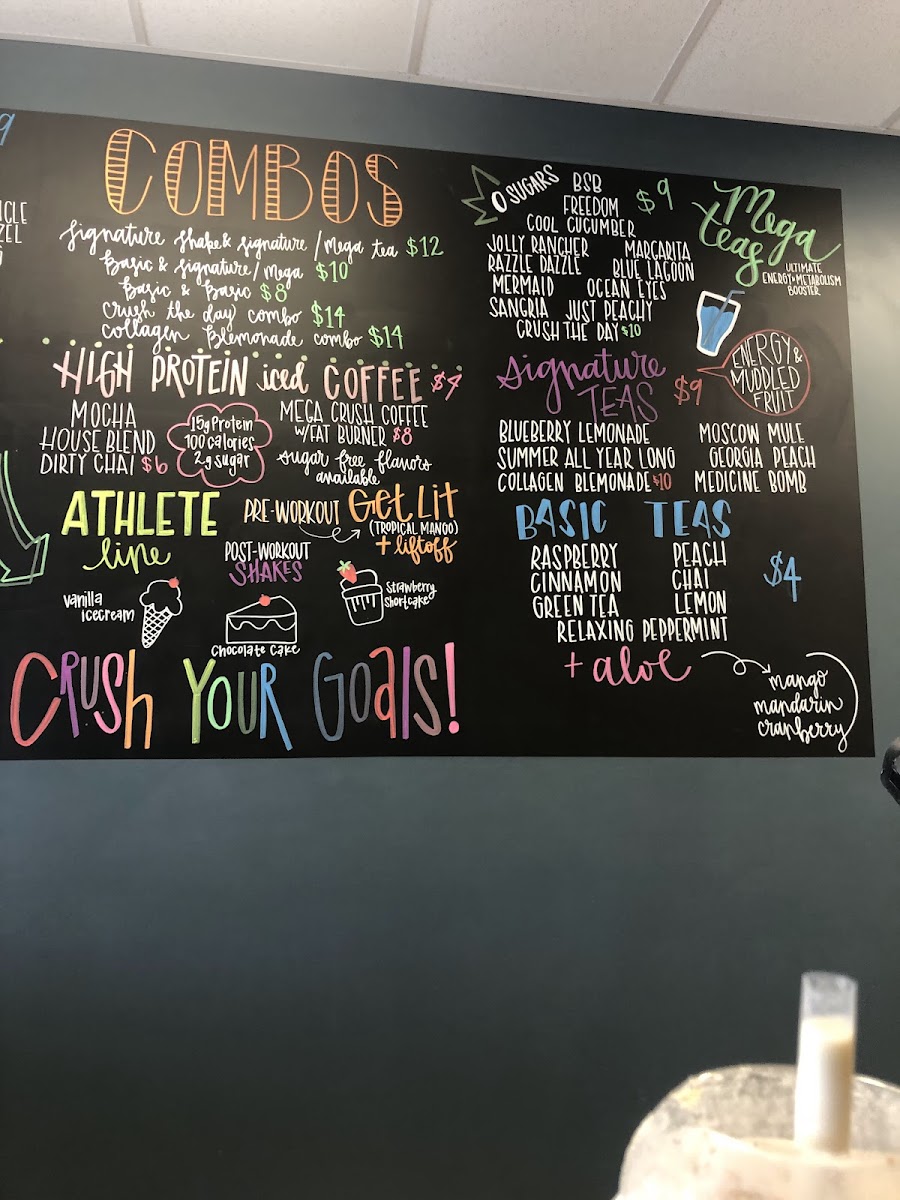 9
COMBOS
Signature Shake & Signature / Mega tea $12
Basic & Signature / Mega $10
Basic & Basic $8
Crush the day combo $14
collagen Blemonade combo $14
HIGH PROTEIN iced COFFEE
MOCHA
HOUSE BLEND
DIRTY CHAI $6
15g Protein
100 calories
2g sugar
MEGA CRUSH COFFEE
W/FAT BURNER $8
sugar free flavors
available
ATHLETE
line
PRE-WORKOUT GET LIT
(TROPICAL MANGO)
+ liftoff
POST-WORKOUT
SHAKES
vanilla
icecream
Chocolate Cake
Strawberry
Shortcake
Crush YOUR Goals!
0 SUGARS
BSB
FREEDOM
COOL CUCUMBER
$9
JOLLY RANCHER MARGARITA
RAZZLE DAZZLE BLUE LAGOON
MERMAID OCEAN EYES
SANGRIA JUST PEACHY
CRUSH THE DAY $10
Mega
teas
ULTIMATE
ENERGY & METABOLISM
BOOSTER
ENERGY &
MUDDLED
FRUIT
Signature
TEAS $9
BLUEBERRY LEMONADE MOSCOW MULE
SUMMER ALL YEAR LONG GEORGIA PEACH
COLLAGEN BLEMONADE $10 MEDICINE BOMB
BASIC TEAS
RASPBERRY PEACH
CINNAMON CHAI
GREEN TEA LEMON
RELAXING PEPPERMINT
$4
+ aloe
mango
mandarin
cranberry